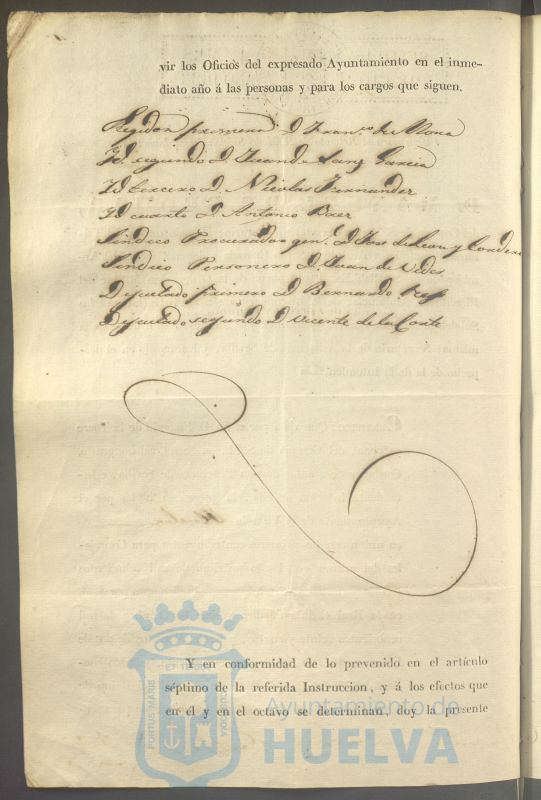 vir los Oficios del expresado Ayuntamiento en el inme-
diato año á las personas y para los cargos que siguen.
Regidor primero D Fran.co de Mora
Yd. segundo D Juan de Sanz Garcia
Yd tercero D. Nicolas Fernandez
Yd cuarto D Antonio
Sindico Procurador gen.l D Jose de Leon y Cordero
Sindico Personero D. Juan de Vides
Diputado primero D Bernardo
Diputado segundo D Vicente de la Corte
Y en conformidad de lo prevenido en el artículo
séptimo de la referida Instruccion, y á los efectos que
en él y en el octavo se determinan, doy la presente
PORTUS MARIS
ET TERRAE
CUSTODIA
Ayuntamiento de
HUELVA